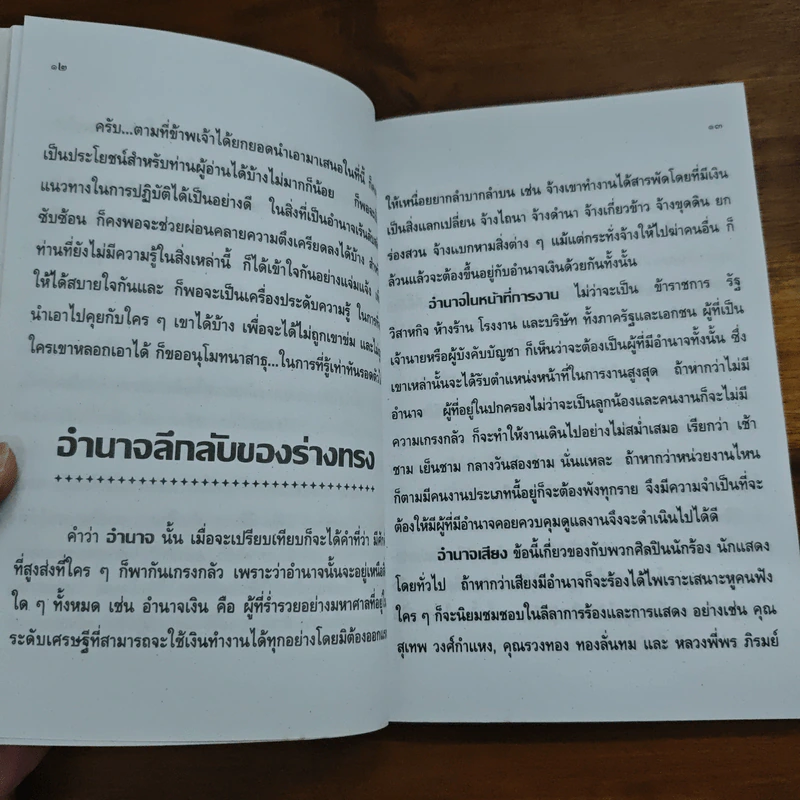 ๑๒
ครับ...ตามที่ข้าพเจ้าได้ยกยอดนำเอามาเสนอในที่นี้
เป็นประโยชน์สำหรับท่านผู้อ่านได้บ้างไม่มากก็น้อย ก็พอจะ
แนวทางในการปฏิบัติได้เป็นอย่างดี ในสิ่งที่เป็นอำนาจเร้นลับ
ซับซ้อน ก็คงพอจะช่วยผ่อนคลายความตึงเครียดลงได้บ้าง
ท่านที่ยังไม่มีความรู้ในสิ่งเหล่านี้ ก็ได้เข้าใจกันอย่างแจ่มแจ้ง
ให้ได้สบายใจกันและ ก็พอจะเป็นเครื่องประดับความรู้ ในการที่
นำเอาไปคุยกับใคร ๆ เขาได้บ้าง เพื่อจะได้ไม่ถูกเขาข่ม และ
ใครเขาหลอกเอาได้ ก็ขออนุโมทนาสาธุ...ในการที่รู้เท่าทันรอดตัว
อำนาจลึกลับของร่างทรง
คำว่า อำนาจ นั้น เมื่อจะเปรียบเทียบก็จะได้คำที่ว่า
ที่สูงส่งที่ใคร ๆ ก็พากันเกรงกลัว เพราะว่าอำนาจนั้นจะอยู่เหนือ
ใด ๆ ทั้งหมด เช่น อำนาจเงิน คือ ผู้ที่ร่ำรวยอย่างมหาศาลที่อยู่ใน
ระดับเศรษฐีที่สามารถจะใช้เงินทำงานได้ทุกอย่างโดยมิต้องออกแรง
๑๓
ให้เหนื่อยยากลำบากลำบน เช่น จ้างเขาทำงานได้สารพัดโดยที่มีเงิน
เป็นสิ่งแลกเปลี่ยน จ้างไถนา จ้างดำนา จ้างเกี่ยวข้าว จ้างขุดดิน ยก
ร่องสวน จ้างแบกหามสิ่งต่าง ๆ แม้แต่กระทั่งจ้างให้ไปฆ่าคนอื่น ก็
ล้วนแล้วจะต้องขึ้นอยู่กับอำนาจเงินด้วยกันทั้งนั้น
อำนาจในหน้าที่การงาน ไม่ว่าจะเป็น ข้าราชการ รัฐ
วิสาหกิจ ห้างร้าน โรงงาน และบริษัท ทั้งภาครัฐและเอกชน ผู้ที่เป็น
เจ้านายหรือผู้บังคับบัญชา ก็เห็นว่าจะต้องเป็นผู้ที่มีอำนาจทั้งนั้น ซึ่ง
เขาเหล่านั้นจะได้รับตำแหน่งหน้าที่ในการงานสูงสุด ถ้าหากว่าไม่มี
อำนาจ ผู้ที่อยู่ในปกครองไม่ว่าจะเป็นลูกน้องและคนงานก็จะไม่มี
ความเกรงกลัว ก็จะทำให้งานเดินไปอย่างไม่สม่ำเสมอ เรียกว่า เช้า
ชาม เย็นชาม กลางวันสองชาม นั่นแหละ ถ้าหากว่าหน่วยงานไหน
ก็ตามมีคนงานประเภทนี้อยู่ก็จะต้องพังทุกราย จึงมีความจำเป็นที่จะ
ต้องให้มีผู้ที่มีอำนาจคอยควบคุมดูแลงานจึงจะดำเนินไปได้ดี
อำนาจเสียง ข้อนี้เกี่ยวของกับพวกศิลปินนักร้อง นักแสดง
โดยทั่วไป ถ้าหากว่าเสียงมีอำนาจก็จะร้องได้ไพเราะเสนาะหูคนฟัง
ใคร ๆ ก็จะนิยมชมชอบในลีลาการร้องและการแสดง อย่างเช่น คุณ
สุเทพ วงศ์กำแหง, คุณรวงทอง ทองลั่นทม และ หลวงพี่พร ภิรมย์